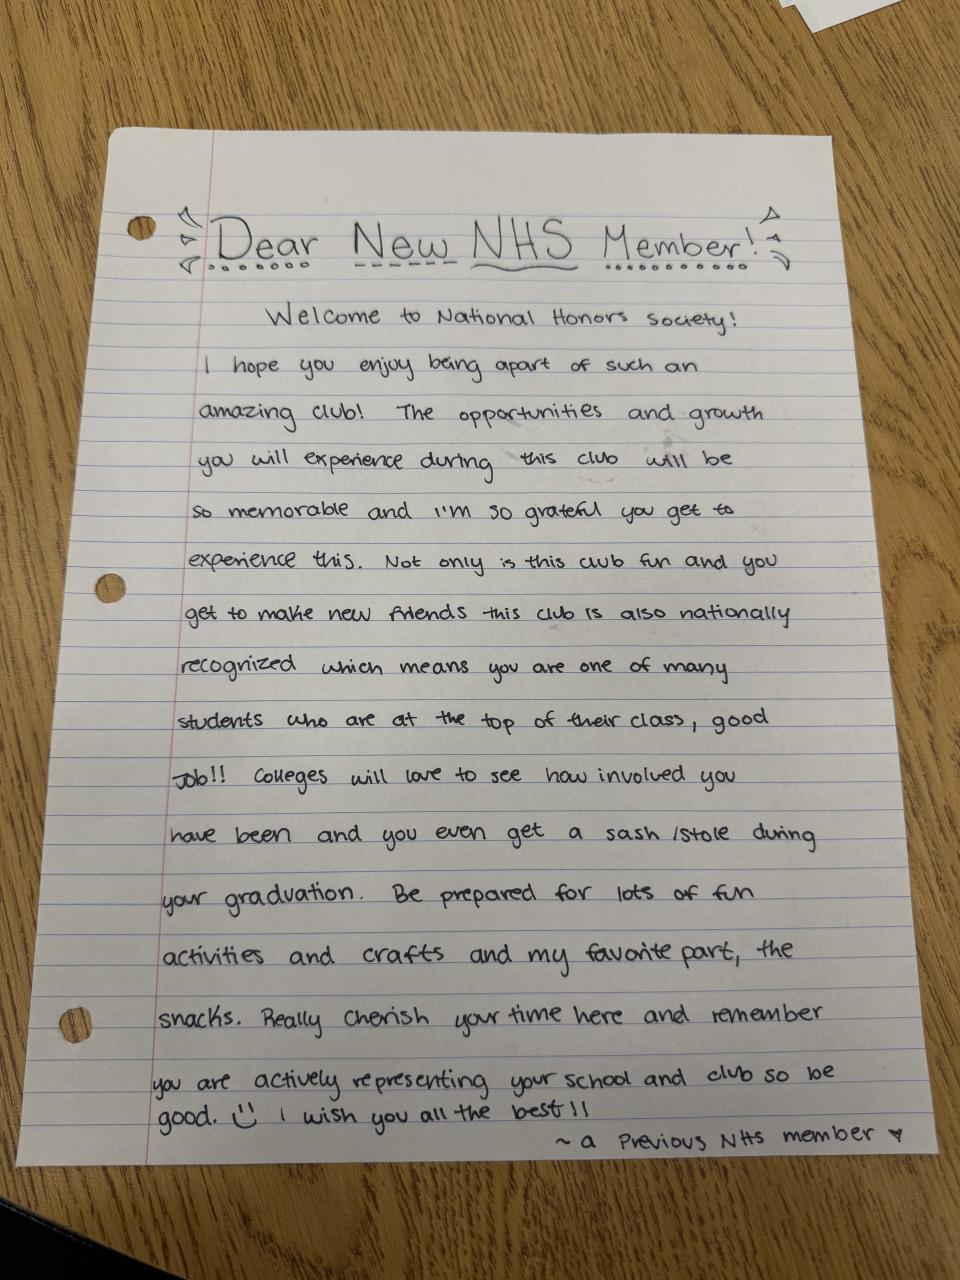 Dear New NHS Member!
Welcome to National Honors Society!
I hope you enjoy being apart of such an
amazing club! The opportunities and growth
you will experience during this club will be
so memorable and I'm so grateful you get to
experience this. Not only is this club fun and you
get to make new friends this club is also nationally
recognized which means you are one of many
students who are at the top of their class, good
Job!! Colleges will love to see how involved you
have been and you even get a sash /stole during
your graduation. Be prepared for lots of fun
activities and crafts and my favorite part, the
snacks. Really cherish your time here and remember
you are actively representing your school and club so be
good. :) I wish you all the best!!
~ a Previous NHS member ♥